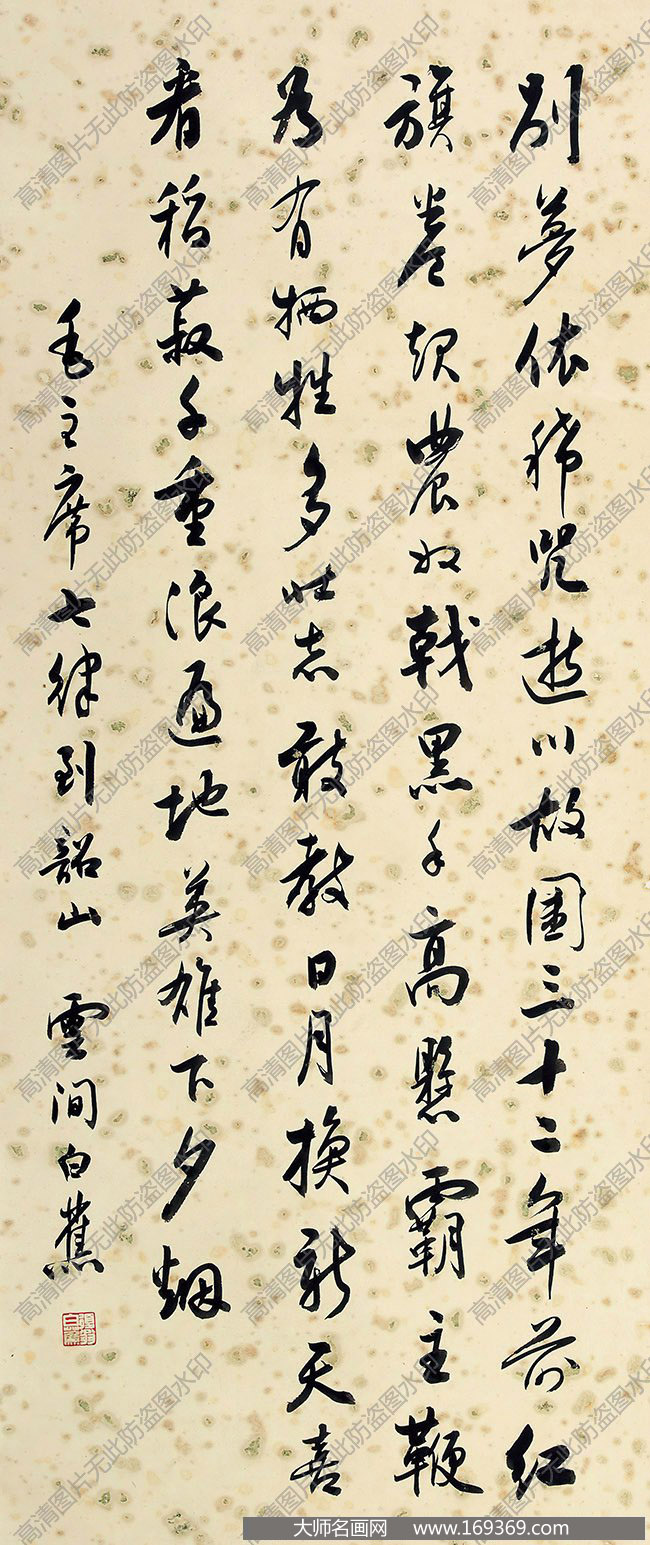 别夢依稀咒逝川故園三十二年前紅
旗卷起農奴戟黑手高懸霸主鞭
为有牺牲多壮志敢教日月換新天喜
看稻菽千重浪遍地英雄下夕烟
毛主席七律到韶山 雲間白蕉
高清图片无此防盗图水印
大师名画网 www.169369.com